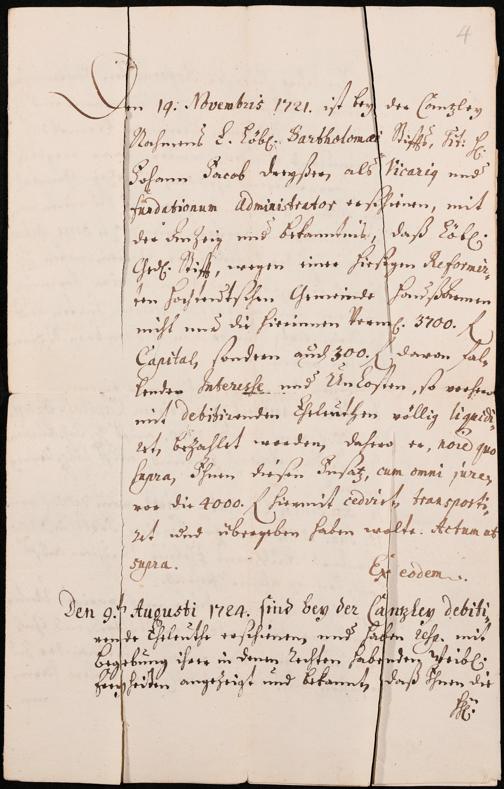 4
Den 19: Novembris 1721. ist bey der Canzley
Nahmens L. Löbl. Bartholomæi Stiffts, Tit: H.
Johann Jacob als Vicariq und
fundationum Administrator erschienen, mit
der Anzeig und bekantnis, daß Löbl.
Ged. Stifft, wegen einer hiesigen Reformir-
ten hochteutschen Gemeinde haußarmen
nicht nur die hierinnen verm. 3700. f
Capital, sondern auch 300. f davon fal-
lenden Interesse und Unkosten, so
mit debitirenden Eheleuthen völlig liquidi-
ret, bezahlet worden, dahero er, noie quo
supra, Ihnen diesen Insatz, cum omni jure,
vor die 4000. f hiermit cedirt, transporti-
ret und übergeben haben wolte. Actum ut
supra.
Ex eodem.
Den 9.t Augusti 1724. sind bey der Canzley debiti-
rende Eheleuthe erschienen, und haben resp. mit
begebung ihrer in denen Rechten habenden Weibl.
Freyheiten angezeigt und bekannt, daß Ihnen die